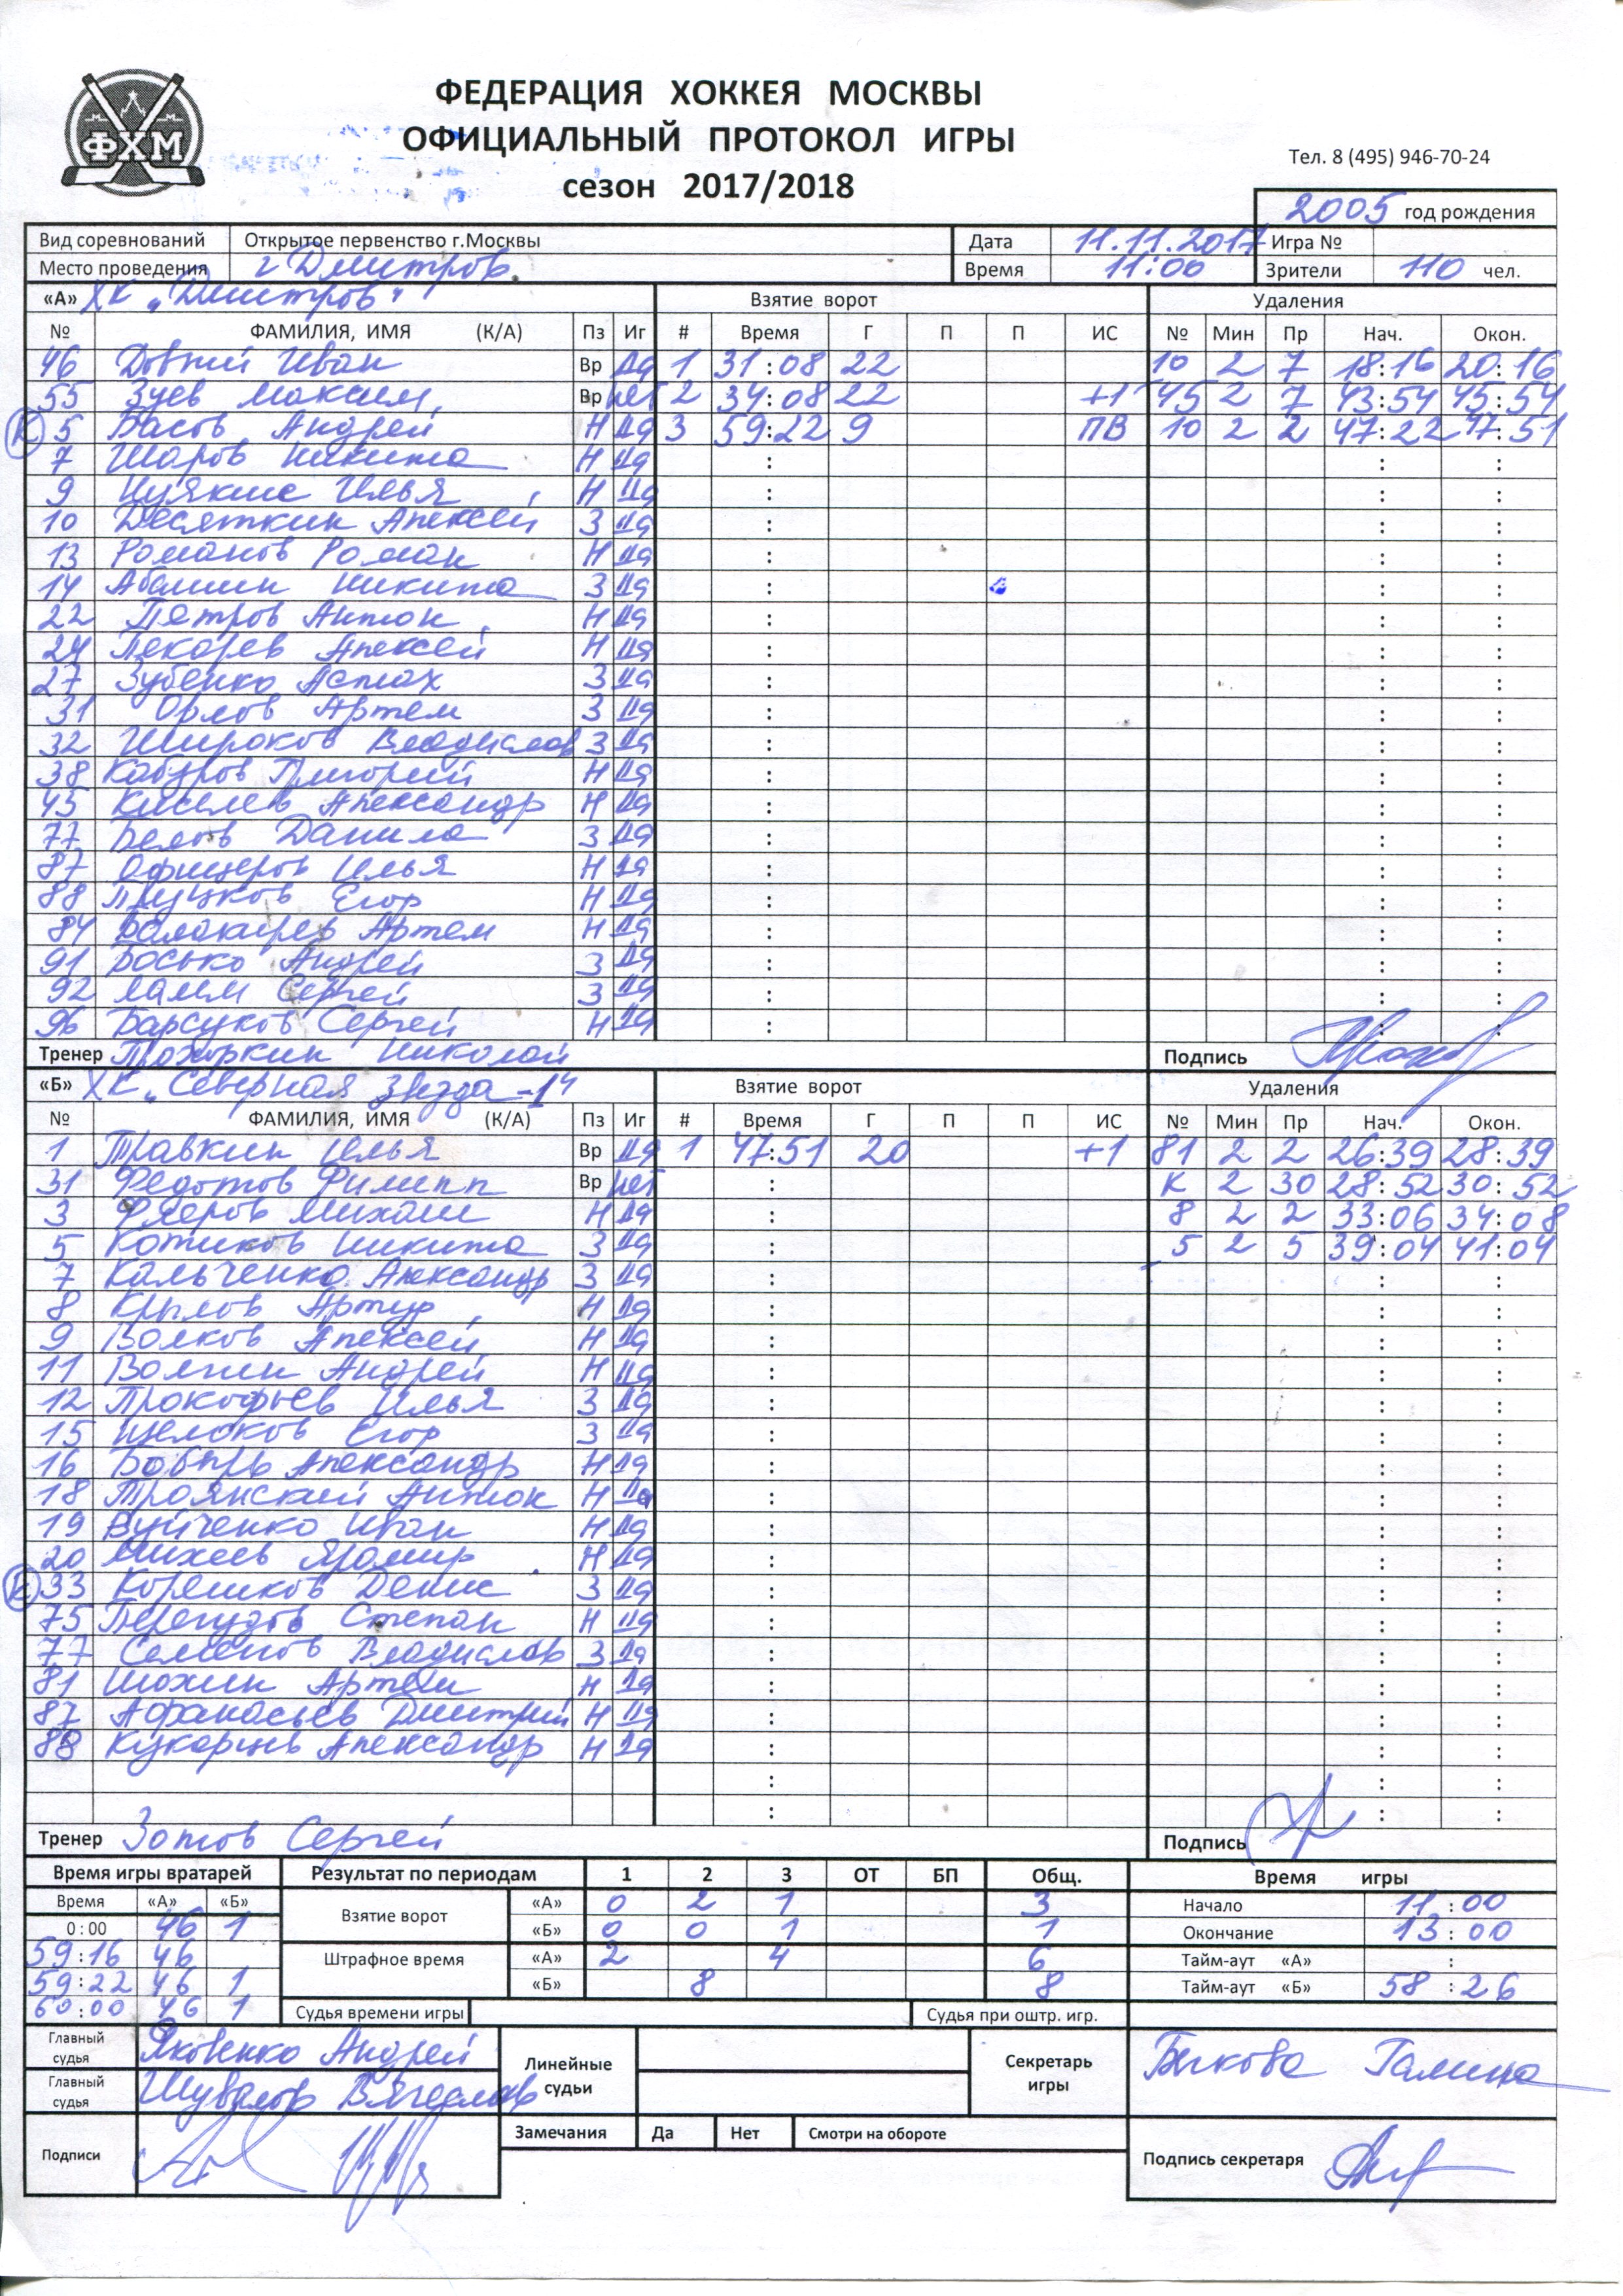 ФХМ
ФЕДЕРАЦИЯ ХОККЕЯ МОСКВЫ
ОФИЦИАЛЬНЫЙ ПРОТОКОЛ ИГРЫ
сезон 2017/2018
Тел. 8 (495) 946-70-24
2005 год рождения
Вид соревнований Открытое первенство г.Москвы Дата 11.11.2017 Игра №
Место проведения г Дмитров Время 11:00 Зрители 110 чел.
«А» ХК „Дмитров" Взятие ворот Удаления
№ ФАМИЛИЯ, ИМЯ (К/А) Пз Иг # Время Г П П ИС № Мин Пр Нач. Окон.
46 Довгий Иван Вр да 1 31:08 22 10 2 7 18:16 20:16
55 Зуев Максим Вр нет 2 34:08 22 +1 45 2 7 43:54 45:54
К 5 Басов Андрей Н да 3 59:22 9 ПВ 10 2 2 47:22 47:51
7 Шаров Никита Н да
9 Илья Н да
10 Десяткин Алексей З да
13 Романов Роман Н да
14 Никита З да
22 Петров Антон Н да
24 Пекарев Алексей Н да
27 Зубенко З да
31 Орлов Артем З да
32 Широков Владислав З да
38 Кабуров Григорий Н да
45 Киселев Александр Н да
77 Белов Данила З да
87 Офицеров Илья Н да
88 Егор Н да
84 Балакирев Артем Н да
91 Босько Андрей З да
92 Сергей З да
96 Барсуков Сергей Н да
Тренер Прохоркин Николай Подпись
«Б» ХК „Северная Звезда-1" Взятие ворот Удаления
№ ФАМИЛИЯ, ИМЯ (К/А) Пз Иг # Время Г П П ИС № Мин Пр Нач. Окон.
1 Травкин Илья Вр да 1 47:51 20 +1 81 2 2 26:39 28:39
31 Федотов Филипп Вр нет К 2 30 28:52 30:52
3 Михаил Н да 8 2 2 33:06 34:08
5 Котиков Никита З да 5 2 5 39:04 41:04
7 Кальченко Александр З да
8 Крылов Артур Н да
9 Волков Алексей Н да
11 Волгин Андрей Н да
12 Прокофьев Илья З да
15 Щелоков Егор З да
16 Бобырь Александр Н да
18 Троянский Антон Н да
19 Вуйченко Иван Н да
20 Михеев Яромир Н да
К 33 Корешков Денис З да
75 Перегудов Степан Н да
77 Семенов Владислав З да
81 Шохин Артем Н да
87 Афанасьев Дмитрий Н да
88 Кукарцев Александр Н да
Тренер Зотов Сергей Подпись
Время игры вратарей Результат по периодам 1 2 3 ОТ БП Общ. Время игры
Время «А» «Б» Взятие ворот «А» 0 2 1 3 Начало 11:00
0:00 46 1 «Б» 0 0 1 1 Окончание 13:00
59:16 46 Штрафное время «А» 2 4 6 Тайм-аут «А» :
59:22 46 1 «Б» 8 8 Тайм-аут «Б» 58:26
60:00 46 1 Судья времени игры Судья при оштр. игр.
Главный судья Яковенко Андрей Линейные судьи Секретарь игры Быкова Галина
Главный судья Шувалов Вячеслав
Подписи Замечания Да Нет Смотри на обороте Подпись секретаря